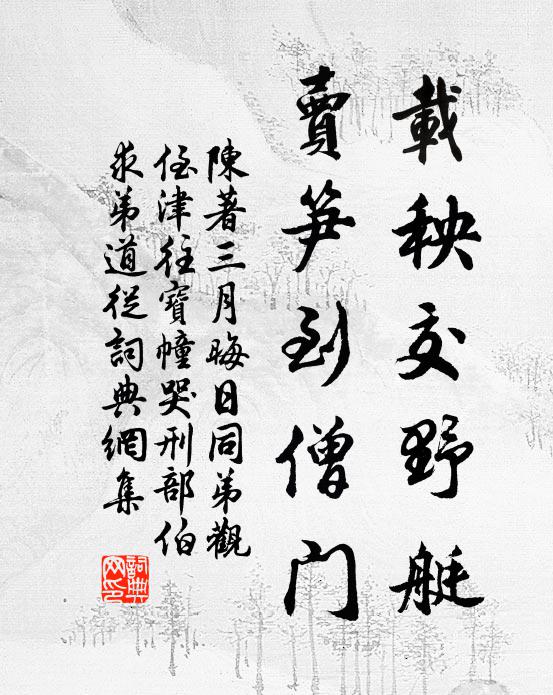 載秧交野艇
賣笋到僧门
陳著三月晦日同弟觀
侄津往寶幢哭刑部伯
求弟道從詞典網集
詞典
网印